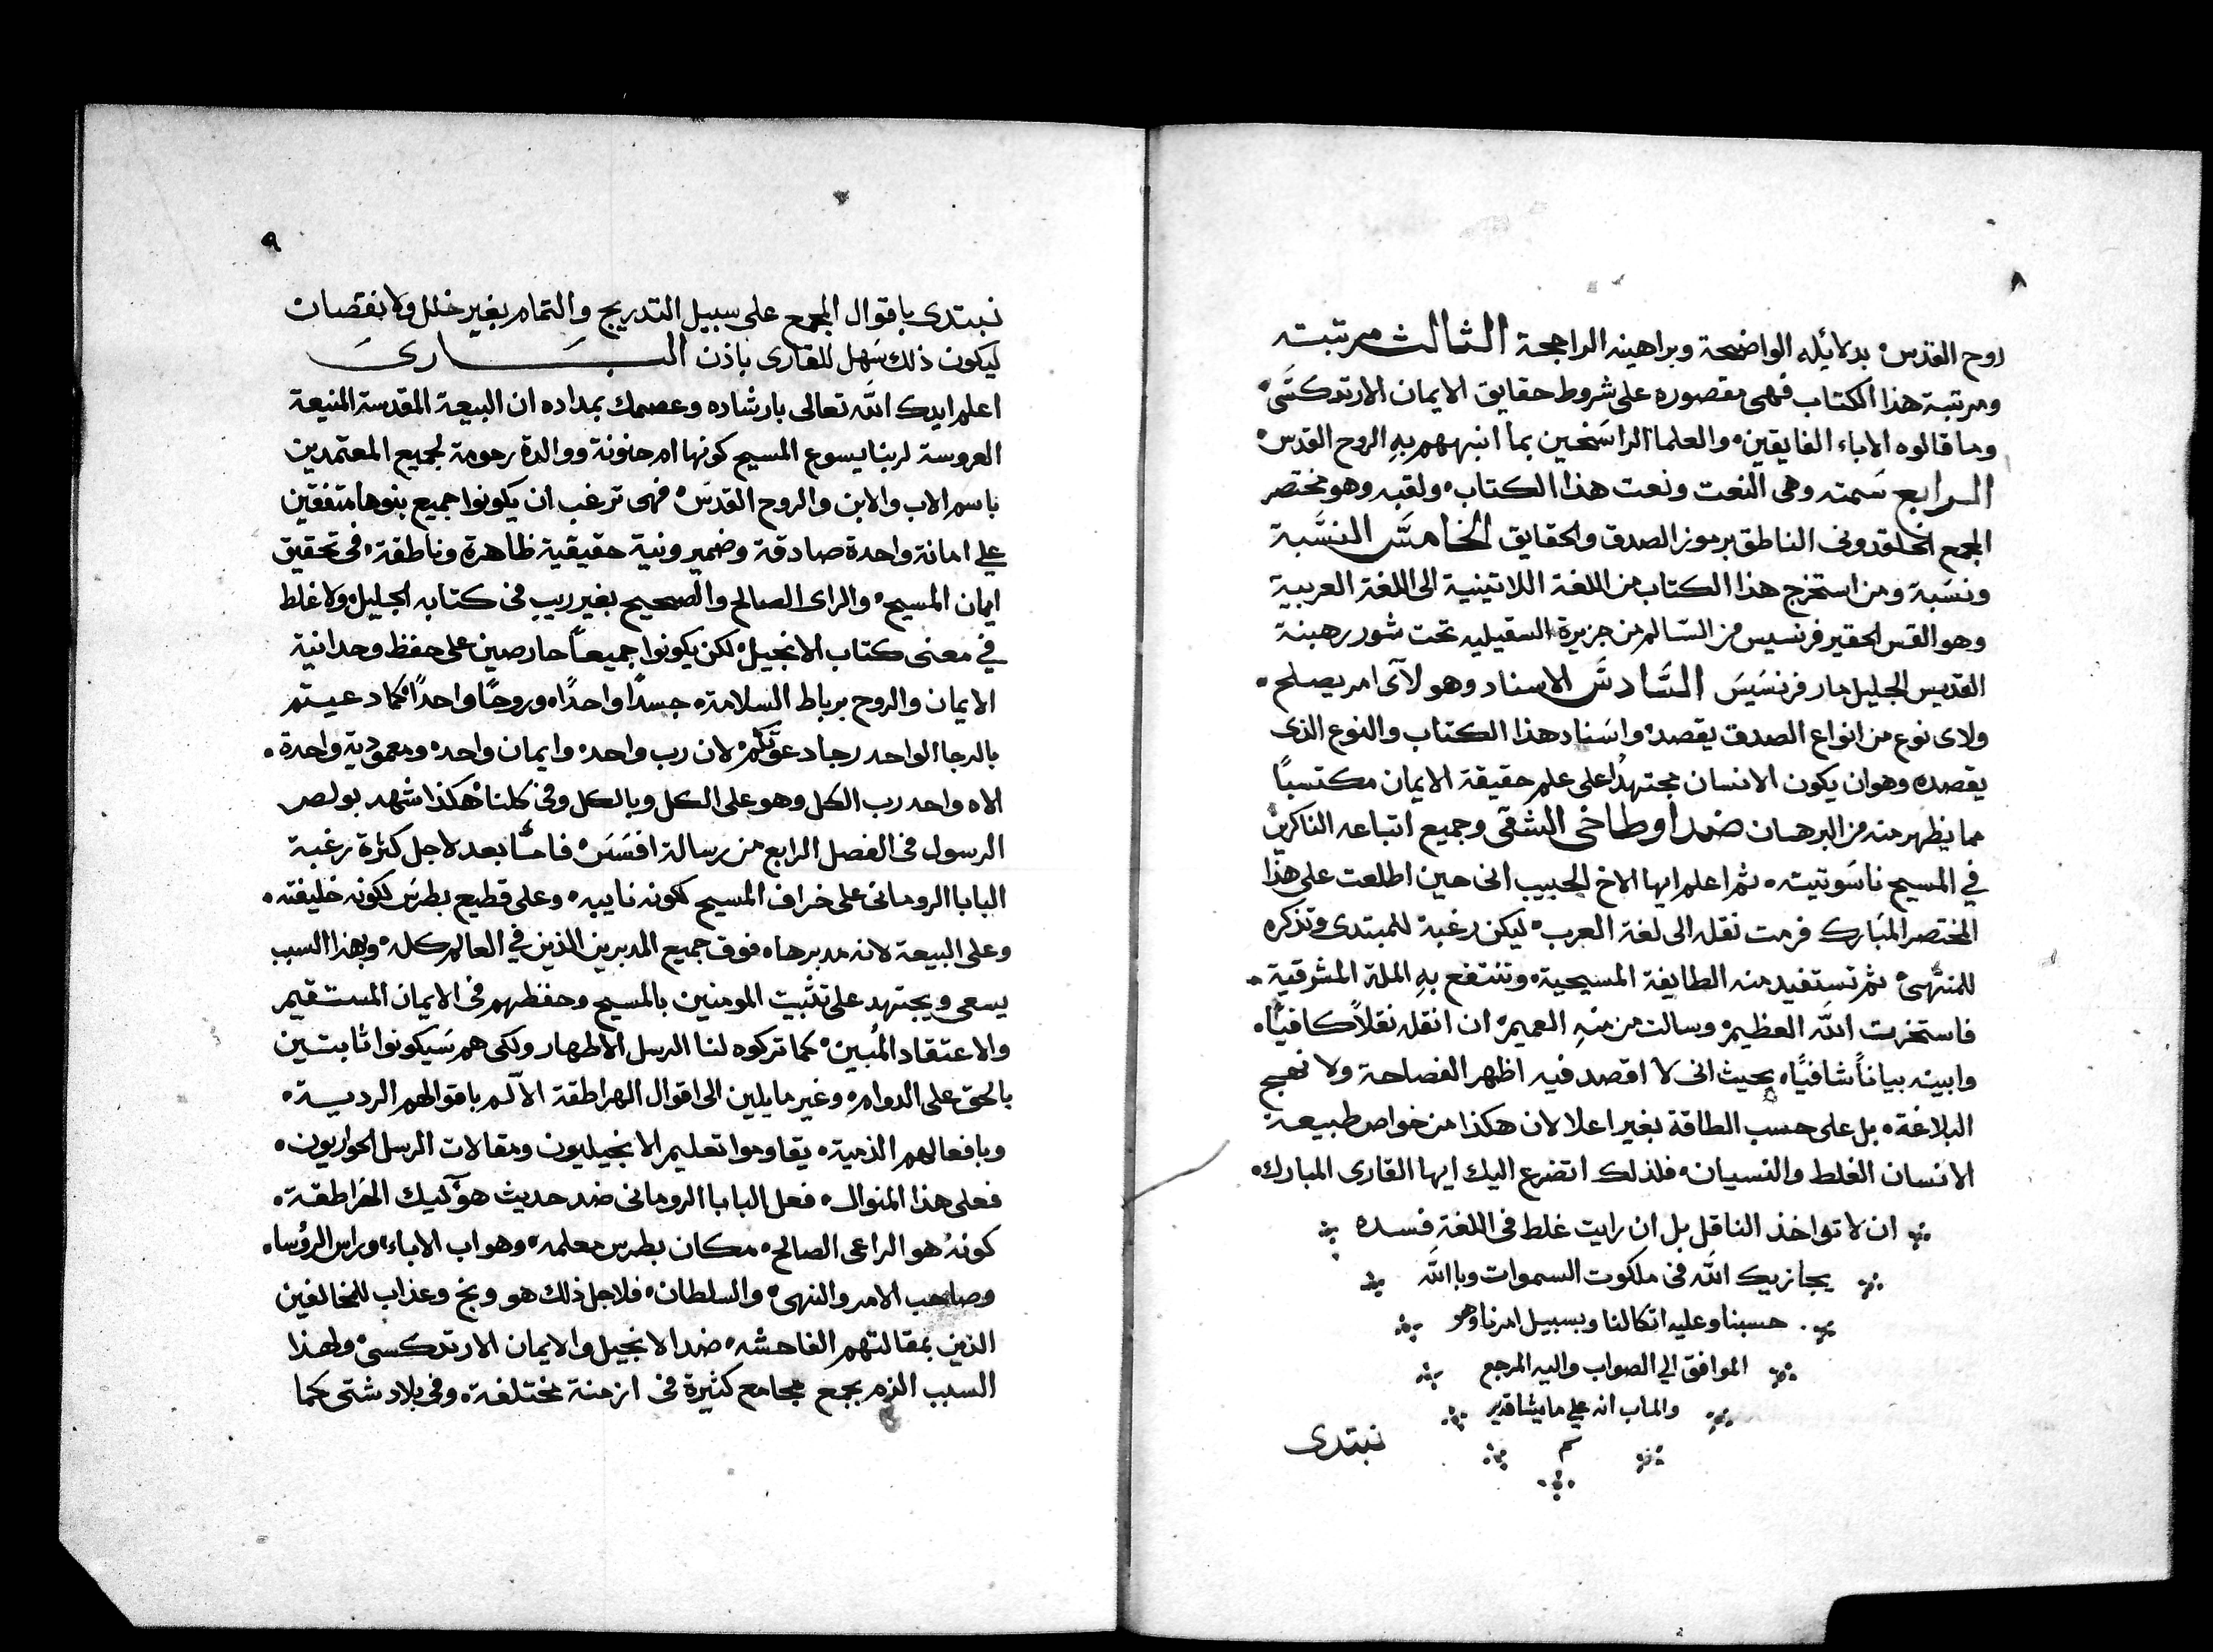 ٨
روح القدس٠ بدلائيله الواضحة وبراهينه الراجحة الثالث مرتبته
ومرتبة هذا الكتاب فهى مقصوره على شروط حقايق الايمان الارتدكسى٠
وما قالوه الاباء الفايقين٠ والعلما الراسخين بما انبههم بهِ الروح القدس٠
الرابع سمته وهى النعت ونعت هذا الكتاب٠ ولقبه وهو مختصر
المجمع الخلقدونى الناطق برموز الصدق والحقايق الخامس النسبة
ونسبة ومن استخرج هذا الكتاب من اللغة اللاتينية الى اللغة العربية
وهو القس الحقير فرنسيس من السالم من جزيرة السقيليه تحت شور رهبنة
القديس الجليل مار فرنسيس السادس الاسناد وهو لآى امر يصلح٠
ولاى نوع من انواع الصدق يقصد٠ واسناد هذا الكتاب والنوع الذى
يقصده وهو ان يكون الانسان مجتهدًا على علم حقيقة الايمان مكتسبًا
مما يظهر منه من البرهان ضد اوطاخى الشقى وجميع اتباعه الناكرين
في المسيح ناسوتيته٠ ثم اعلم ايها الاخ الحبيب انى حين اطلعت على هذا
المختصر المبارك فرمت نقله الى لغة العرب٠ ليكن رغبة للمبتدى وتذكره
للمنتهى٠ ثم تستفيد منه الطايفة المسيحية٠ وتنتفع بهِ الملة المشرقية٠
فاستخرت الله العظيم٠ وسالت من منهِ العميم٠ ان انقله نقلاً كافيًا٠
وابينه بياناً شافيًا٠ بحيث انى لا اقصد فيه اظهر الفصاحة ولا نهج
البلاغة٠ بل على حسب الطاقة بغير اعلا لان هكذا من خواص طبيعة
الانسان الغلط والنسيان٠ فلذلك اتضرع اليك ايها القارى المبارك٠
ان لا تواخذ الناقل بل ان رايت غلط فى اللغة فسده
يجازيك الله فى ملكوت السموات وبا الله
حسبنا وعليه اتكالنا وبسبيل امرنا وهو
الموافق الي الصواب واليه المرجع
والماب انه علي ما يشا قدير
نبتدى
٩
نبتدى باقوال المجمع على سبيل التدريج والتمام بغير خلل ولا نقصان
ليكون ذلك سهل للقارى باذن البارى
اعلم ايدك الله تعالى بارشاده وعصمك بمداده ان البيعة المقدسة المنيعة
العروسة لربنا يسوع المسيح كونها ام حنونة ووالدة رحومة لجميع المعتمدين
باسم الاب والابن والروح القدس٠ فهى ترغب ان يكونوا جميع بنوها متفقين
علي امانة واحدة صادقة وضمير ونية حقيقية ظاهرة وناطقة٠ فى تحقيق
ايمان المسيح٠ والراى الصالح والصحيح بغير ريب فى كتابه الجليل٠ ولا غلط
في معنى كتاب الانجيل٠ لكن يكونوا جميعاً حارصين على حفظ وحدانية
الايمان والروح برباط السلامة٠ جسدًا واحدًا٠ وروحًا واحدًا٠ كما دعيتم
بالرجا الواحد رجا دعوتكم٠ لان رب واحد٠ وايمان واحد٠ ومعمودية واحدة٠
الاه واحد رب الكل وهو على الكل وبالكل وفى كلنا٠ هكذا شهد بولص
الرسول فى الفصل الرابع من رسالة افسس٠ فامّا بعد لاجل كثرة رغبة
البابا الرومانى على خراف المسيح لكونه نايبه٠ وعلى قطيع بطرس لكونه خليفته٠
وعلى البيعة لانه مدبرها٠ فوق جميع المدبرين الذين في العالم كله٠ وبهذا السبب
يسعى ويجتهد على تثبيت المومنين بالمسيح وحفظهم فى الايمان المستقيم
والاعتقاد المُبين٠ كما تركوه لنا الرسل الاطهار ولكى هم سيكونوا ثابتين
بالحق على الدوام٠ وغير مايلين الى اقوال الهراطقة الآلم باقوالهم الردية٠
وبافعالهم الذمية٠ يقاوموا تعليم الانجيليون ومقالات الرسل الحواريون٠
فعلى هذا المنوال٠ فعل البابا الرومانى ضد حديث هوآليك الهراطقة٠
كونهُ هو الراعى الصالح٠ مكان بطرس معلمه٠ وهو اب الاباء٠ وراس الرؤسا٠
وصاحب الامر والنهى٠ والسلطان٠ فلاجل ذلك هو وبخ وعذاب للمخالفين
الذين بمقالتهم الفاحشه٠ ضد الانجيل والايمان الارتدكسى٠ ولهذا
السبب الزم بجمع مجامع كثيرة فى ازمنة مختلفة٠ وفى بلاد شتى كما